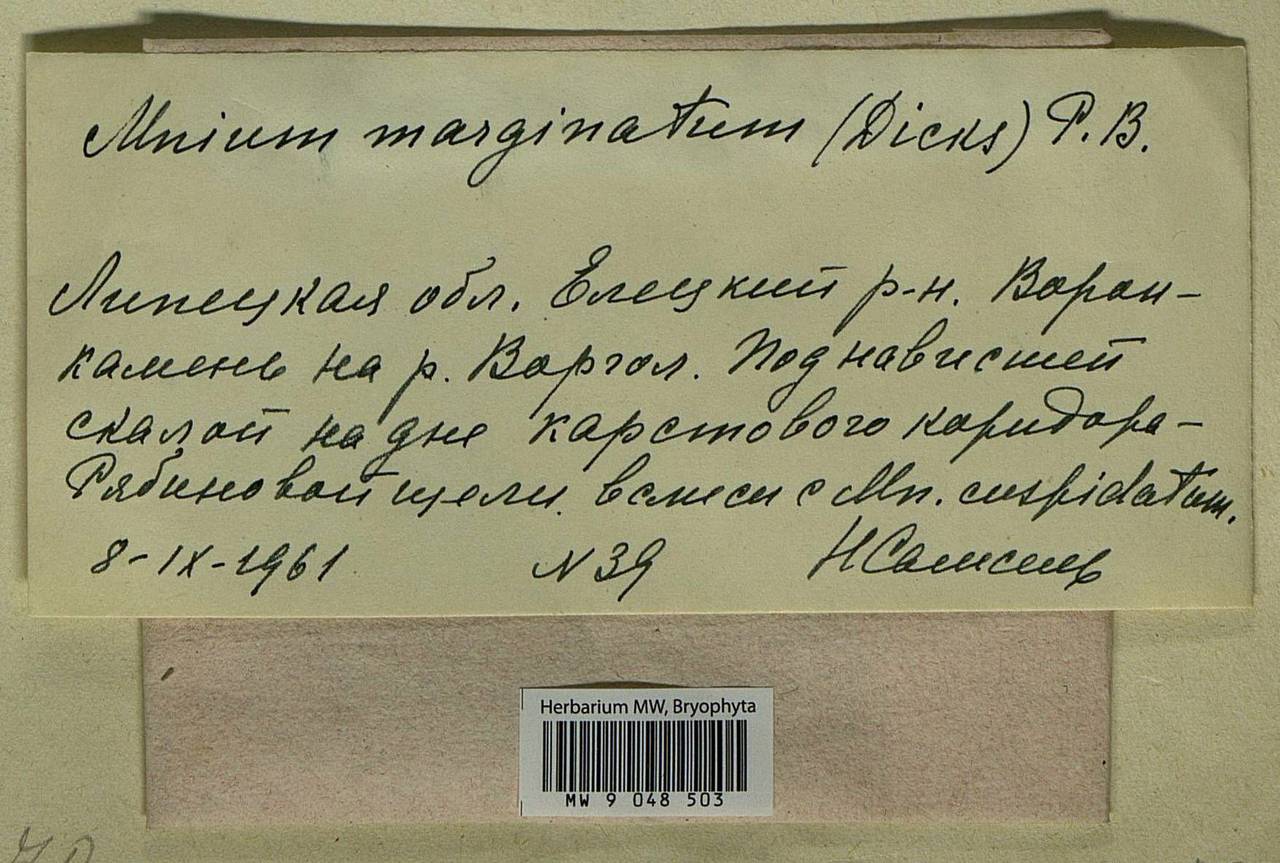 Mnium marginatum (Dicks) P. B.
Липецкая обл. Елецкий р-н. Ворон-
камень на р. Воргол. Под нависшей
скалой на дне карстового коридора-
Рябиновой щели. в смеси с Mn. cuspidatum.
8-IX-1961 N 39 Н Самсель
Herbarium MW, Bryophyta
MW 9 048 503